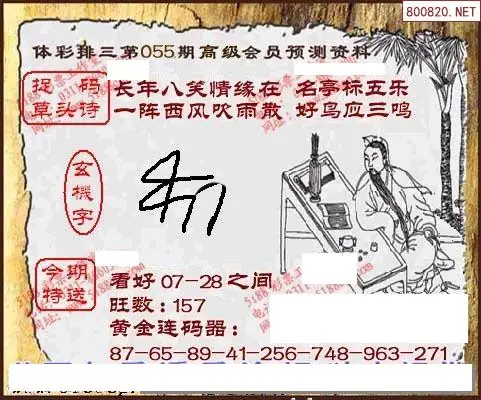 800820.NET
体彩排三第055期高级会员预测资料
捉码
草头诗
长年八笑情缘在 名亭标五乐
一阵西风吹雨散 好鸟应三鸣
玄機字
今期
特送
看好 07-28 之间
旺数：157
黄金连码器：
87-65-89-41-256-748-963-271